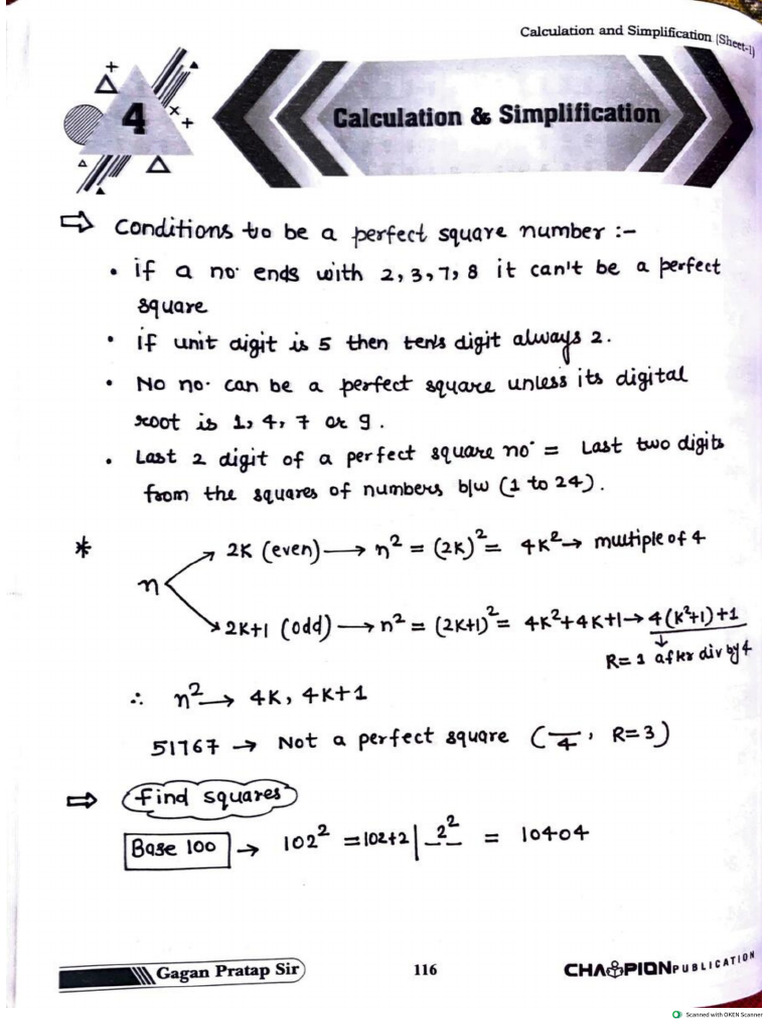 Calculation and Simplification (Sheet-1)
4
Calculation & Simplification
⇨ Conditions to be a perfect square number :-
• if a no. ends with 2, 3, 7, 8 it can't be a perfect
square
• if unit digit is 5 then ten's digit always 2.
• No no. can be a perfect square unless its digital
root is 1, 4, 7 or 9.
• Last 2 digit of a perfect square no. = Last two digits
from the squares of numbers b/w (1 to 24).
* 2K (even) → n² = (2K)² = 4K² → multiple of 4
n
2K+1 (odd) → n² = (2K+1)² = 4K²+4K+1 → 4(K²+1)+1
R=1 after div by 4
∴ n² → 4K, 4K+1
51767 → Not a perfect square (—/4, R=3)
⇨ Find squares
Base 100 → 102² = 102+2 | 2² = 10404
Gagan Pratap Sir
116
CHAMPION PUBLICATION
Scanned with OKEN Scanner